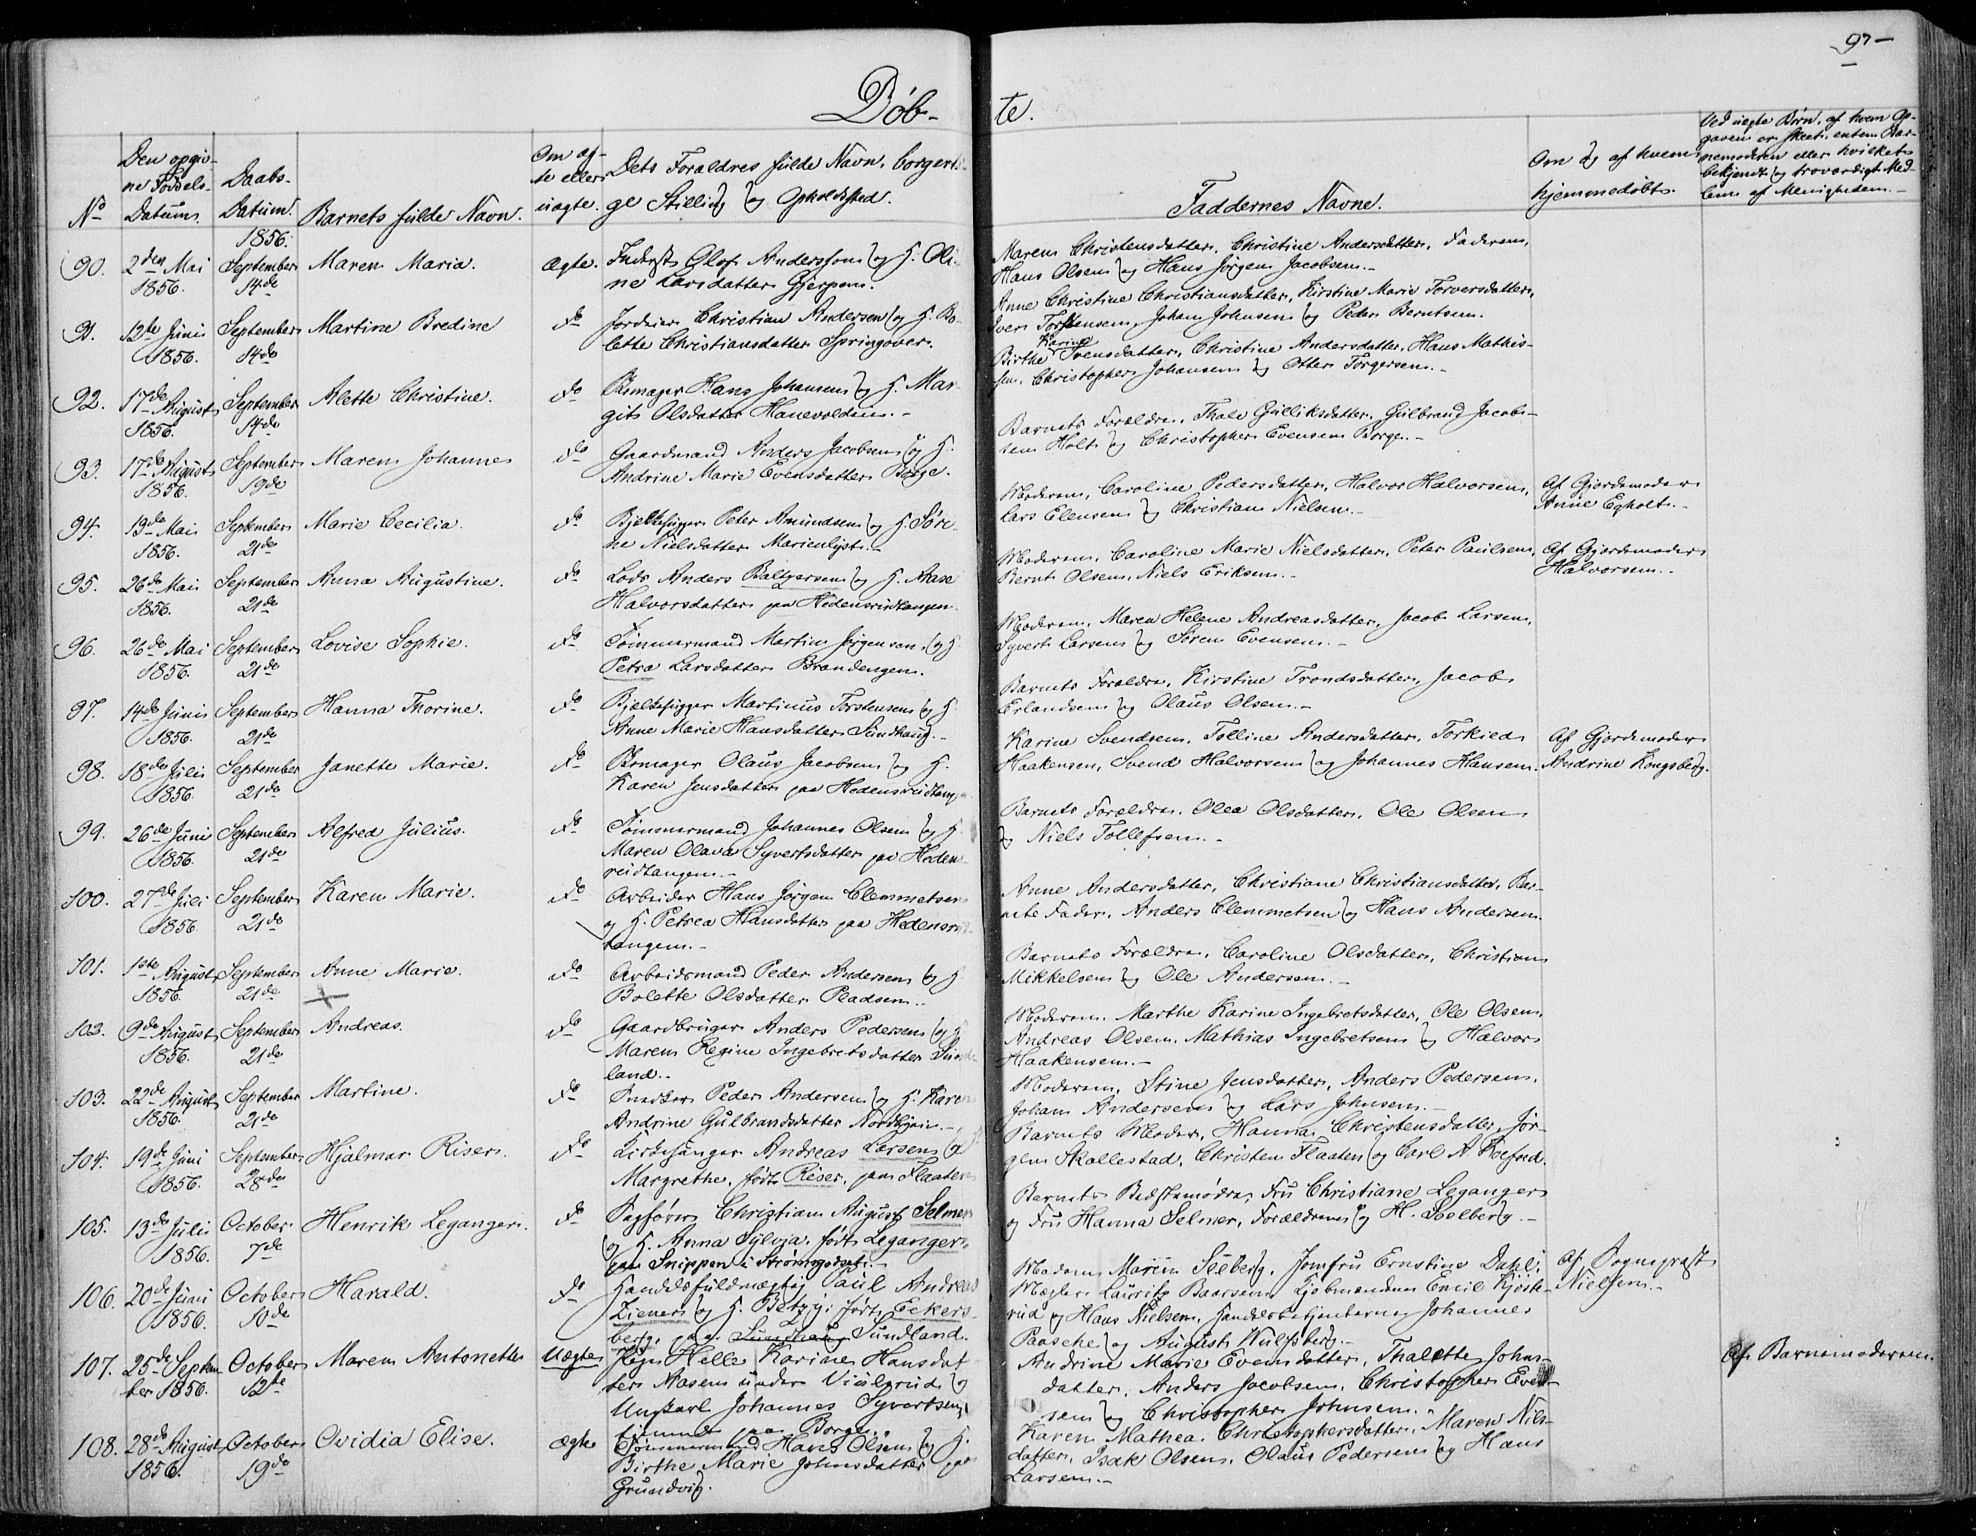 97
Døbte.
No
Den opgivne Fødsels-Datum.
Daabs-Datum.
Barnets fulde Navn.
Om ægte eller uægte.
Dets Forældres fulde Navn, borgerlige Stilling og Opholdssted.
Faddernes Navne.
Om og af hvem hjemmedøbt.
Ved uægte Børn, af hvem Opgaven er skeet, enten Barnemoderen eller hvilket bekjendt og troværdigt Medlem af Menigheden.
1856.
90. 2den Mai September Maren Maria. Ægte. Inderst Olof Andersson og H. Oli-
1856. 14de ne Larsdatter Gjerpen.
Maren Christensdatter, Christine Andersdatter, Faderen,
Hans Olsen og Hans Jørgen Jacobsen.
91. 12te Juni September Martine Bredine do Jordeier Christian Andersen og H. Bo-
1856. 14de lette Christiansdatter Springover.
Anne Christine Christiansdatter, Kirstine Marie Torversdatter,
Iver Torstensen, Johan Johnsen og Peder Berntsen.
92. 17de August September Alette Christine. do Hans Johansen og H. Mar-
1856. 14de git Olsdatter Hanevolden.
Karine
Birthe Svensdatter, Christine Andersdatter, Hans Mathis-
sen, Christopher Johansen og Otter Torgersen.
93. 17de August September Maren Johanne do Gaardmand Anders Jacobsen og H.
1856. 19de Andrine Marie Evensdatter Borge.
Barnets Forældre, Thale Gulliksdatter, Gulbrand Jacob-
sen Holt og Christopher Evensen Borge.
94. 19de Mai September Marie Cecilia. do Bjelkehugger Peter Amundsen og H. Søre-
1856. 21de ne Nielsdatter Marienlyst.
Moderen, Caroline Pedersdatter, Halvor Halvorsen, Af Gjordemoder
Lars Elensen og Christian Nielsen. Anne Egholt.
95. 26de Mai September Anna Augustine. do Lods Anders Baltzersen og H. Aase
1856. 21de Halvorsdatter paa Hedensrudtangen.
Moderen, Caroline Marie Nielsdatter, Peter Paulsen, Af Gjordemoder
Bernt Olsen, Niels Eriksen. Halvorsen.
96. 26de Mai September Lovise Sophie. do Tømmermand Martin Jørgensen og H.
1856. 21de Petra Larsdatter Brandengen.
Moderen, Maren Helene Andreasdatter, Jacob Larsen,
Syvert Larsen og Søren Evensen.
97. 14de Juni September Hanna Thorine. do Bjelkehugger Martinus Torstensen og H.
1856. 21de Anne Marie Hansdatter Sundhaug.
Barnets Forældre, Kirstine Trondsdatter, Jacob
Erlandsen og Olaus Olsen.
98. 18de Juli September Janette Marie. do Olaus Jacobsen og H.
1856. 21de Karen Jensdatter paa Hedensrudtang
Karine Svendsen, Tolline Andersdatter, Torkied Af Gjordemoder
Haakensen, Svend Halvorsen og Johannes Hansen. Andrine Kongsberg.
99. 26de Juni September Alfred Julius. do Tømmermand Johannes Olsen og H.
1856. 21de Maren Olava Syvertsdatter paa Heden-
srudtangen.
Barnets Forældre, Olea Olsdatter, Ole Olsen
og Niels Tollefsen.
100. 27de Juli September Karen Marie. do Arbeider Hans Jørgen Clemmetsen
1856. 21de og H. Petrea Hansdatter paa Hedensrud-
tangen.
Anne Andersdatter, Christiane Christiansdatter, Bar-
nets Fader, Anders Clemmetsen og Hans Andersen.
101. 1ste August September Anne Marie. do Arbeidsmand Peder Andersen og H
1856. 21de Bolette Olsdatter Pladsen.
Barnets Forældre, Caroline Olsdatter, Christian
Mikkelsen og Ole Andersen.
102. 9de August September Andreas. do Gaardbruger Anders Pedersen og H
1856. 21de Maren Regine Ingebretsdatter Sund-
land.
Moderen, Marthe Karine Ingebretsdatter, Ole Olsen,
Andreas Olsen, Mathias Ingebretsen og Halvor
Haakensen.
103. 22de August September Martine. do Snedker Peder Andersen og H. Karen
1856. 21de Andrine Gulbrandsdatter Nordbyeie.
Moderen, Stine Jensdatter, Anders Pedersen,
Johan Andersen og Lars Johnsen.
104. 19de Juni September Hjalmar Riser. do Kirkesanger Andreas Larsen og H
1856. 28de Margrethe, født Riser, paa Flaaten
Barnets Moder, Hanna Christensdatter, Jør-
gen Skallestad, Christen Flaaten og Carl A.
105. 13de Juli October Henrik Leganger. do Sagfører Christian August Selmer
1856. 7de og H. Anna Sylvia, født Leganger,
paa Snippen i Strømsgodset.
Barnets Bedstemødre Fru Christiane Leganger
og Fru Hanna Selmer, Forældrene og H. Seelberg.
106. 20de Juni October Harald. do Handelsfuldmægtig Paul Andreas
1856. 10de Ziener og H. Betzy, født Eckers-
berg, paa Sundhaug Sundland.
Madam Maren Seeberg, Jomfru Ernstine Dahl, Af Sognepræst
Mægler Lauritz Baarsen, Kjøbmændene Emil Kjøste- Nielsen.
rud og Hans Nielsen, Handelsbetjenterne Johannes
Paasche og August Wulfsberg.
107. 25de Septem- October Maren Antonette Uægte Pigen Helle Karine Hansdat-
ber 1856. 12te ter Aasen under Viulsrud og
Ungkarl Johannes Syvertsen,
tjenende paa Borge.
Andrine Marie Evensdatter, Thalette Johns- Af Barnemoderen.
datter, Anders Jacobsen, Christopher Even-
sen og Christopher Johnsen.
108. 28de August October Ovidia Elise. Ægte Tømmermand Hans Olsen og H.
1856. 19de Birthe Marie Johnsdatter paa
Grundvig.
Karen Mathea Christophersdatter, Maren Nils-
datter, Isak Olsen, Olaus Pedersen og Hans
Larsen.